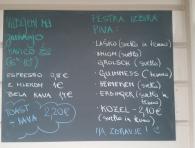 VABLJENI NA
jutranjo
KAVICO ŽE
ESPRESSO 0,8€
Z MLEKOM 1€
BELA KAVA 1,4€
TOAST
+ KAVA 2,20€
PESTRA IZBIRA
PIVA:
• LAŠKO (svetlo in temno)
• UNION (svetlo)
• GROLSCH (svetlo)
• GUINNESS (temno)
• HEINEKEN (svetlo)
• ERDINGER (svetlo in temno)
• KOZEL - 2,10€
(svetlo in temno)
NA ZDRAVJE!